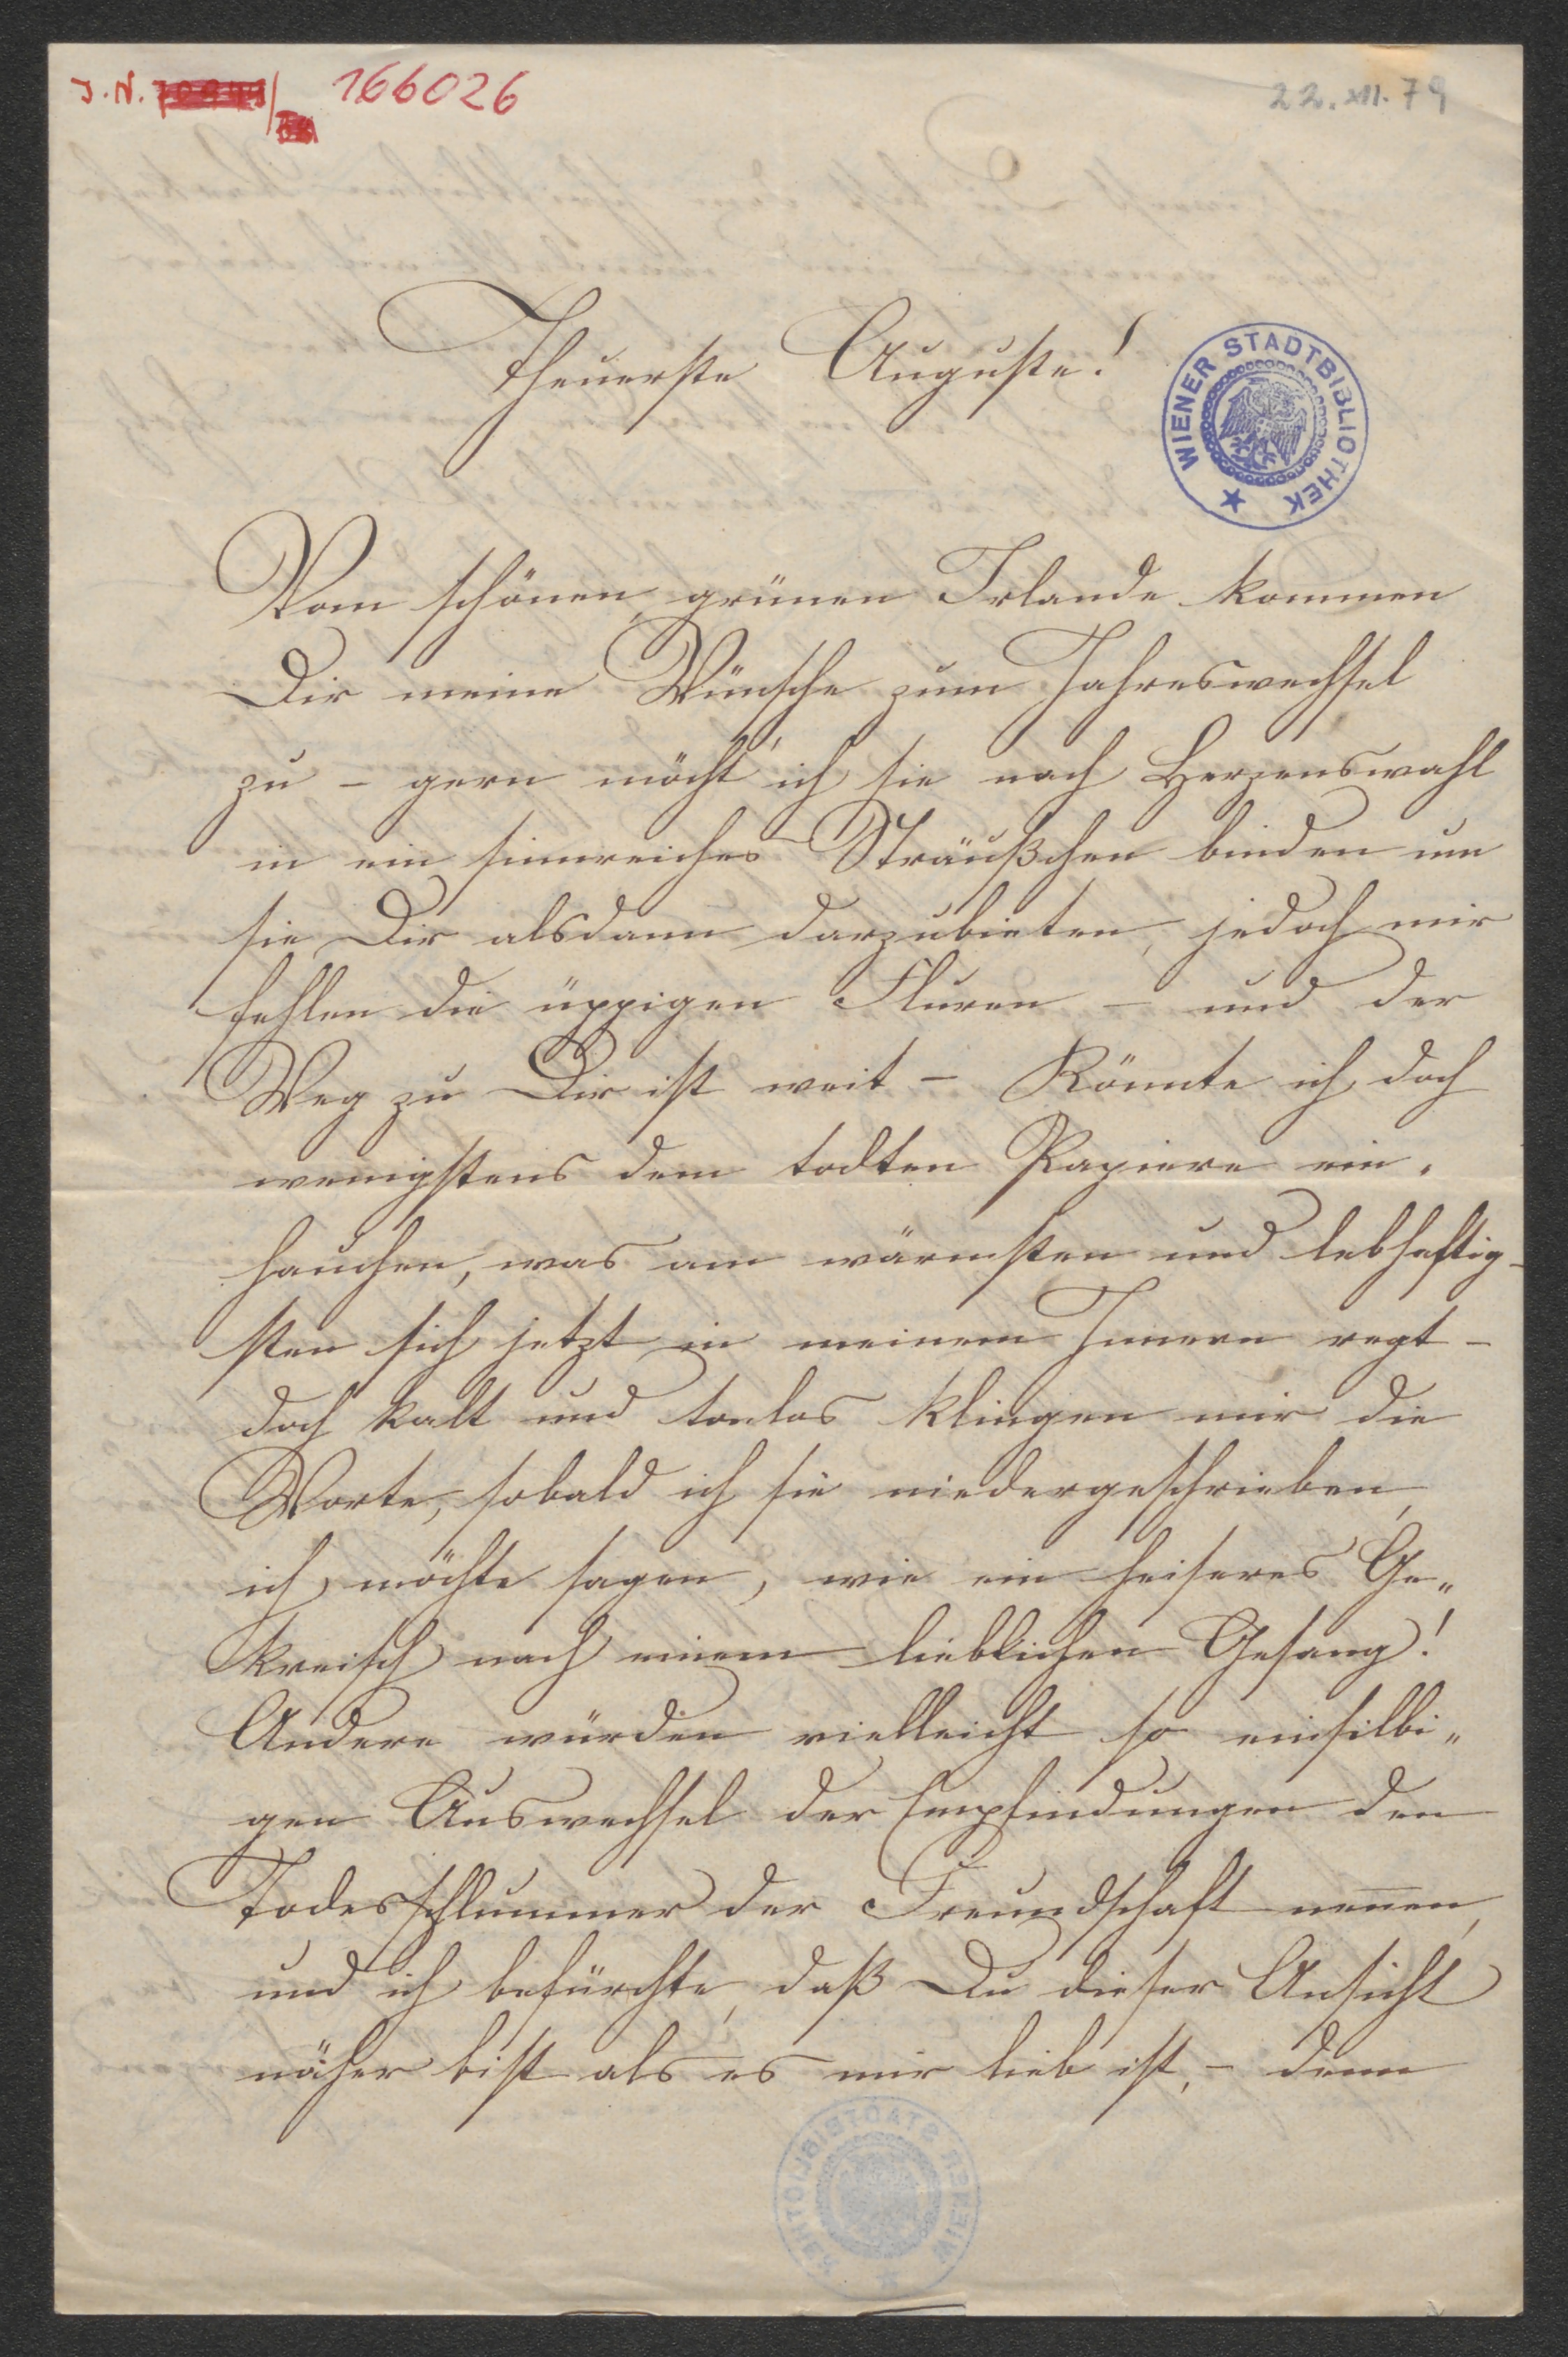 J.N. 166026
22.XII.79
Theuerste Auguste!
WIENER STADTBIBLIOTHEK
Vom schönen, grünen Irlande kommen
Dir meine Wünsche zum Jahreswechsel
zu – gern möcht' ich sie nach Herzenswahl
in ein sinnreiches Sträußchen binden um
sie Dir alsdann darzubieten, jedoch mir
fehlen die üppigen Fluren – und der
Weg zu Dir ist weit – Könnte ich doch
wenigstens dem todten Papiere ein-
hauchen, was am wärmsten und lebhaftig-
sten sich jetzt in meinem Innern regt –
doch kalt und tonlos klingen mir die
Worte, sobald ich sie niedergeschrieben,
ich möchte sagen, wie ein heiseres Ge„
kreisch nach einem lieblichen Gesang!
Andere würden vielleicht so einsilbi„
gen Auswechsel der Empfindungen den
Todesschlummer der Freundschaft nennen,
und ich befürchte, daß Du dieser Ansicht
näher bist als es mir lieb ist, – denn